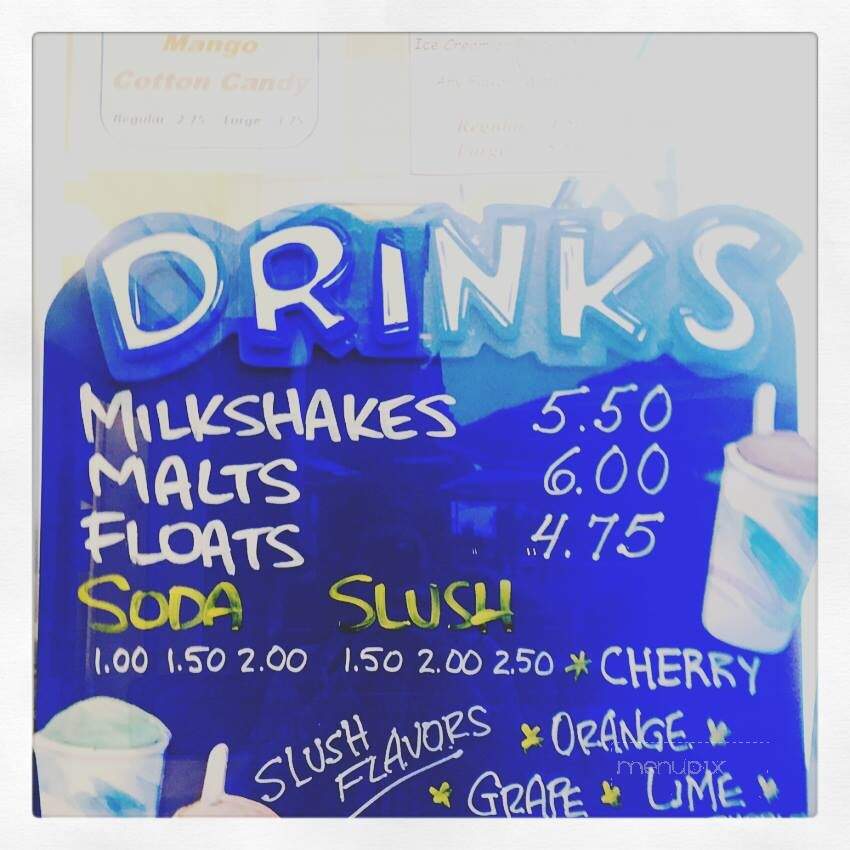 Mango
Cotton Candy
Regular 2.75 Large 3.75
Ice Cream
Regular
Large
DRINKS
MILKSHAKES 5.50
MALTS 6.00
FLOATS 4.75
SODA SLUSH
1.00 1.50 2.00 1.50 2.00 2.50 * CHERRY
SLUSH FLAVORS
* ORANGE *
* GRAPE * LIME *
menupix